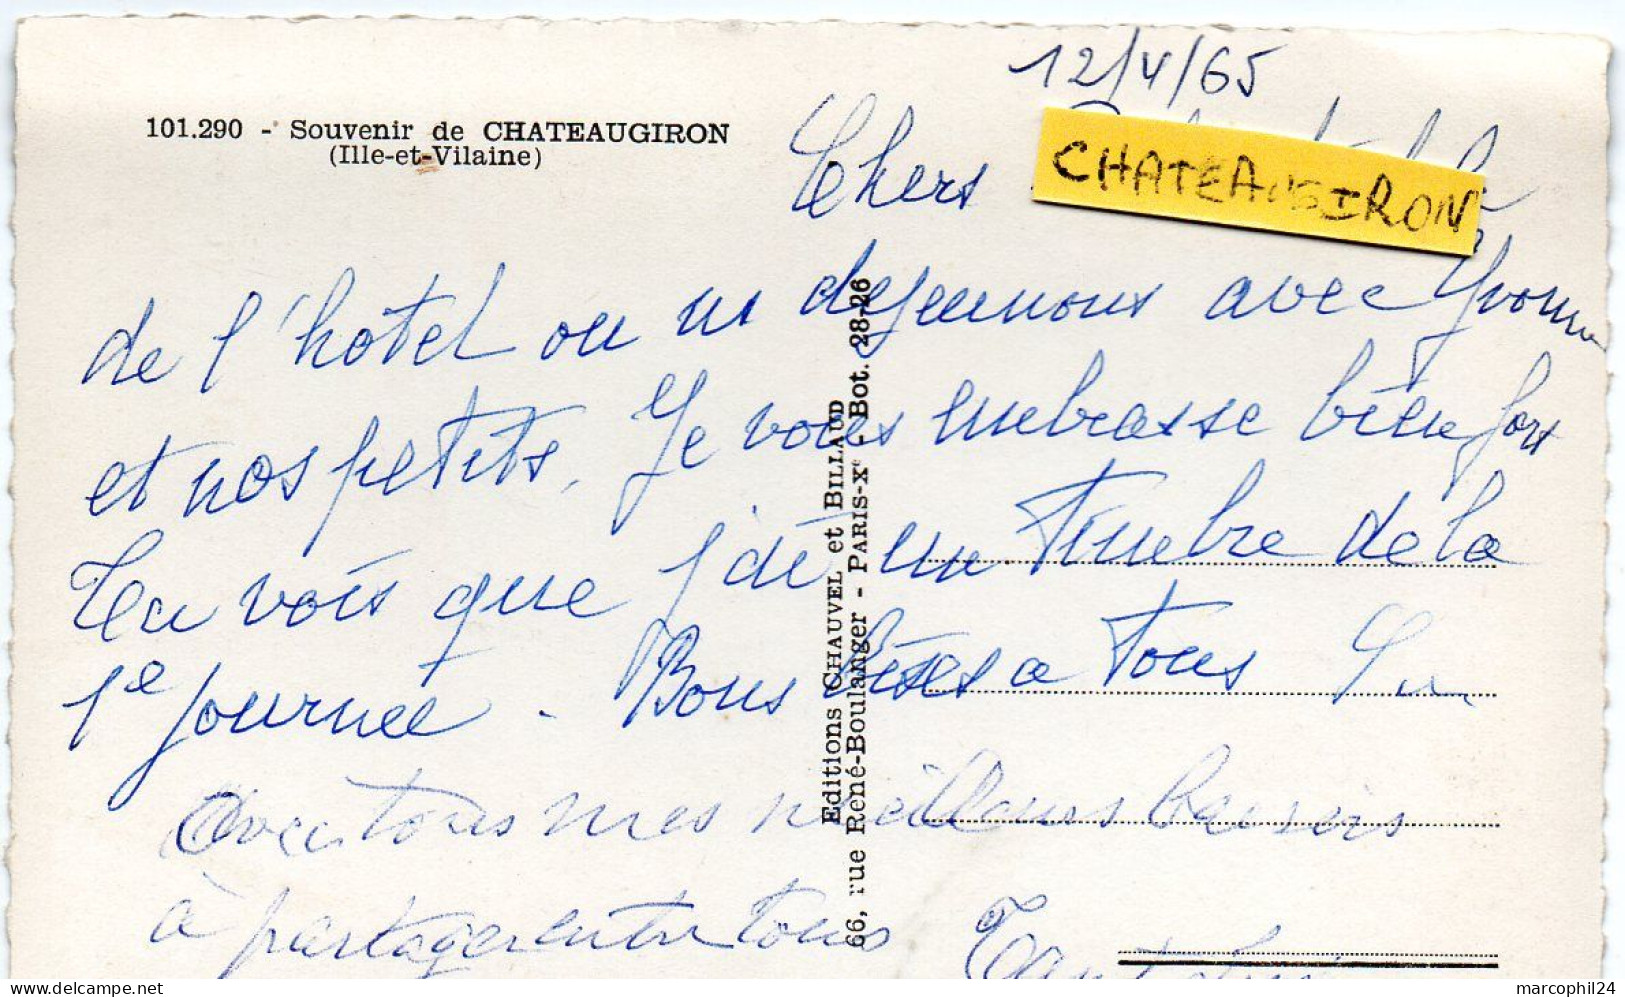 12/4/65
101.290 - Souvenir de CHATEAUGIRON
(Ille-et-Vilaine)
Chers
CHATEAUGIRON
de l'hotel ou ns dejeunons avec Yvonne
et nos petits. Je vous embrasse bien fort
Tu vois que j'ai un timbre de la
1e journee. Bons bises a tous
Avec tous mes meilleurs baisers
à partager entre tous
Editions CHAUVEL et BILLAUD
66, rue René-Boulanger - PARIS-Xe - Bot. 28-26
marcophil24